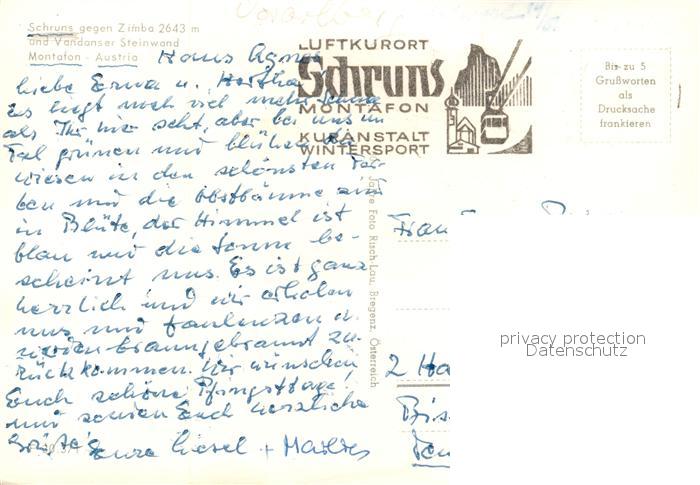 Vorarlberg
Schruns gegen Zimba 2643 m
und Vandanser Steinwand
Montafon - Austria
Hans Agnes
LUFTKURORT
Schruns
MONTAFON
KURANSTALT
WINTERSPORT
Bis zu 5
Grußworten
als
Drucksache
frankieren
liebe Erna u. Hertha
es liegt noch viel mehr
als Ihr hier seht, aber bei uns im
Tal grünen und blühen die
Wiesen in den schönsten Far-
ben und die Obstbäume sind
in Blüte, der Himmel ist
blau und die Sonne be-
scheint uns. Es ist ganz
herrlich und wir erholen
uns und faulenzen u.
werden braungebrannt zu-
rückkommen. Wir wünschen
Euch schöne Pfingsttage
und senden Euch herzliche
Grüße
Eure Liesel +
Foto Risch-Lau, Bregenz, Österreich
Frau
2 Ha
privacy protection
Datenschutz